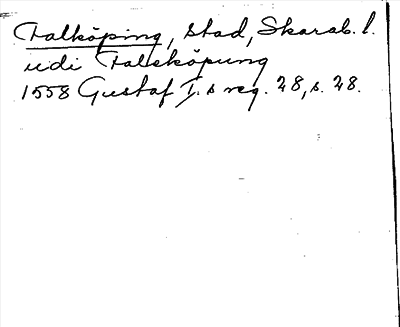 Falköping, stad, Skarab. l.
udi Falsköpung
1558 Gustaf I:s reg. 28, s. 28.